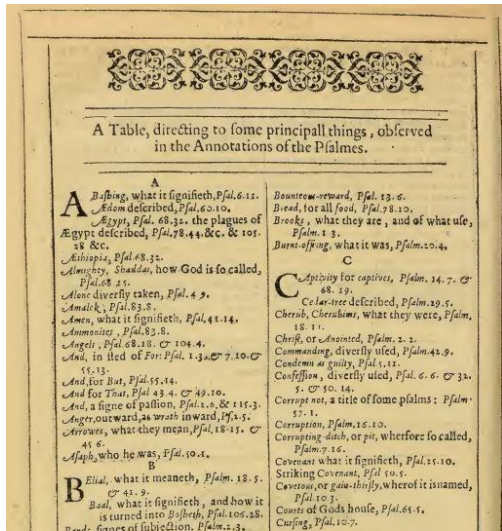 A Table, directing to ſome principall things, obſerved
in the Annotations of the Pſalmes.
A
ABaſhing, what it ſignifieth, Pſal. 6. 11.
Ædom deſcribed, Pſal. 60. 10.
Ægypt, Pſal. 68. 32. the plagues of
Ægypt deſcribed, Pſal. 78. 44. &c. & 105.
28 &c.
Æthiopia, Pſal. 68. 32.
Almighty, Shaddai, how God is ſo called,
Pſal. 68. 15.
Alone diverſly taken, Pſal. 4 9.
Amalek, Pſal. 83. 8.
Amen, what it ſignifieth, Pſal. 41. 14.
Ammonites, Pſal. 83. 8.
Angels, Pſal. 68. 18. & 104. 4.
And, in ſted of For: Pſal. 1. 3. & 7. 10. &
55. 13.
And, for But, Pſal. 55. 14.
And for That, Pſal 43. 4. & 49. 10.
And, a ſigne of paſſion, Pſal. 2. 6. & 115. 3.
Anger, outward, as wrath inward, Pſ. 2. 5.
Arrowes, what they mean, Pſal. 18. 15. &
45 6.
Aſaph, who he was, Pſal. 50. 1.
B
BElial, what it meaneth, Pſalm. 18. 5.
& 41. 9.
Baal, what it ſignifieth, and how it
is turned into Boſheth, Pſal. 106. 28.
Bands, ſignes of ſubjection, Pſalm. 2. 3.
Bounteous-reward, Pſal. 13. 6.
Bread, for all food, Pſal. 78. 20.
Brooks, what they are, and of what uſe,
Pſalm. 1 3.
Burnt-offring, what it was, Pſalm. 20. 4.
C
CAptivity for captives, Pſalm. 14. 7. &
68. 19.
Cedar-tree deſcribed, Pſalm. 29. 5.
Cherub, Cherubims, what they were, Pſalm,
18. 11.
Chriſt, or Anointed, Pſalm. 2. 2.
Commanding, diverſly uſed, Pſalm. 42. 9.
Condemn as guilty, Pſal. 5. 11.
Confeſſion, diverſly uſed, Pſal. 6. 6. & 32.
5. & 50. 14.
Corrupt not, a title of ſome pſalms: Pſalm.
57. 1.
Corruption, Pſalm. 16. 10.
Corrupting-ditch, or pit, wherfore ſo called,
Pſalm. 7. 16.
Covenant what it ſignifieth, Pſal. 25. 10.
Striking Covenant, Pſal 50. 5.
Covetous, or gain-thirſty, wherof it is named,
Pſal. 10 3.
Courts of Gods houſe, Pſal. 65. 5.
Curſing, Pſal. 10. 7.